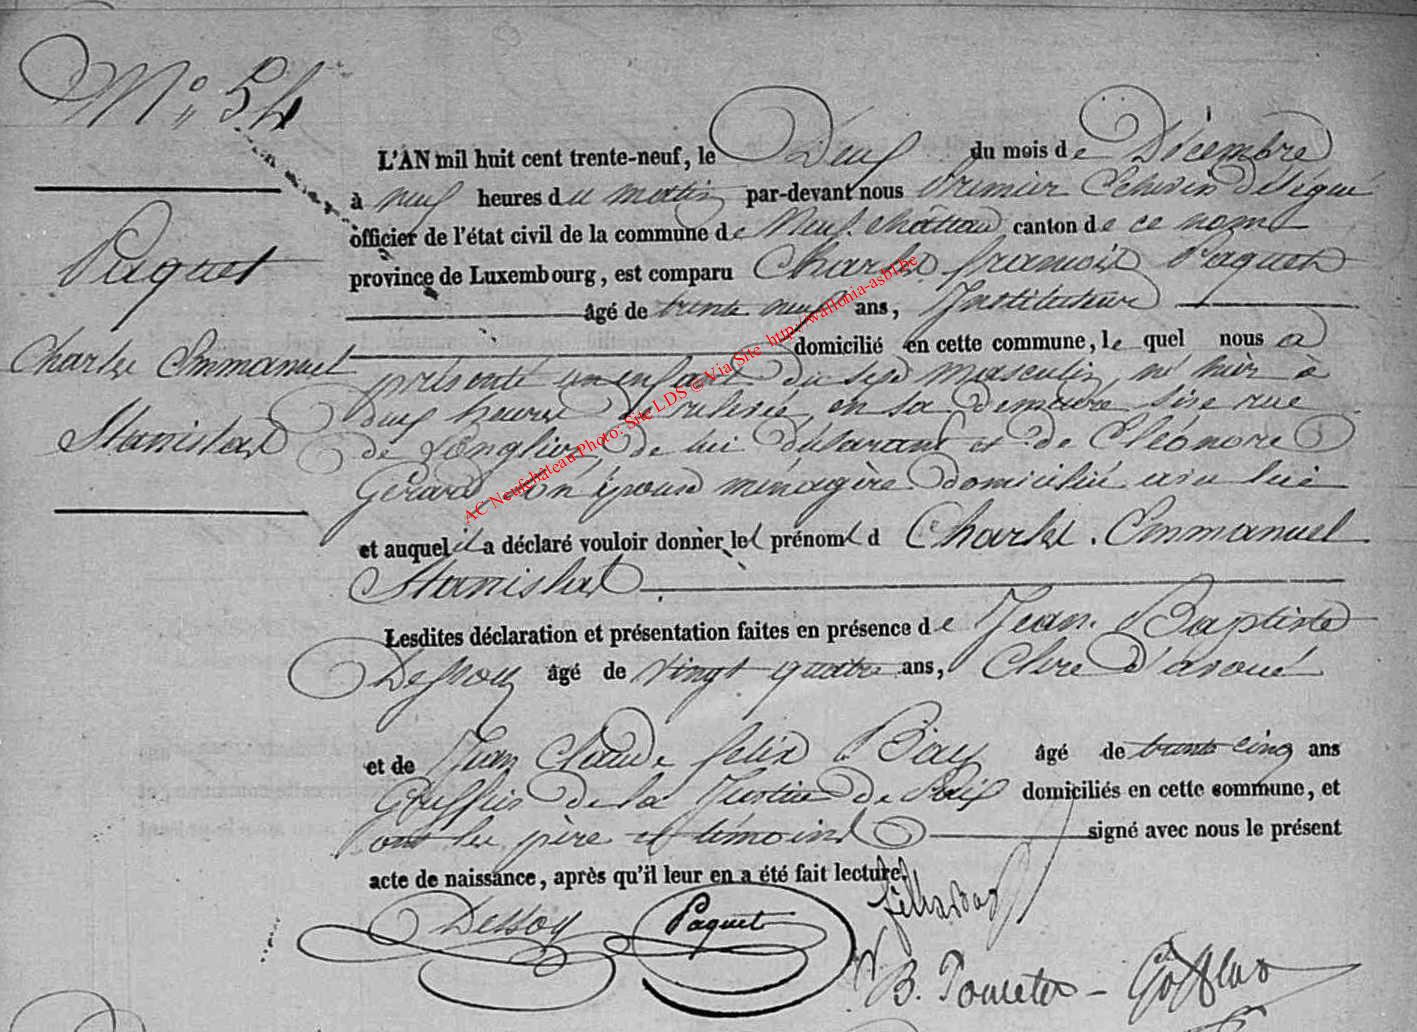 N° 54
L'AN mil huit cent trente-neuf, le Deux du mois de Décembre
à neuf heures du matin par-devant nous Premier Echevin délégué
officier de l'état civil de la commune de Neufchâteau canton de ce nom
Paquet
province de Luxembourg, est comparu Charles françois Paquet
âgé de trente neuf ans, Instituteur
Charles Emmanuel
Stanislas
domicilié en cette commune, le quel nous a
présenté un enfant du sexe masculin né hier à
deux heures de relevée, en sa demeure sise rue
de Longlier de lui déclarant et de Eléonore
Gérard son épouse ménagère domiciliée avec lui
et auquel il a déclaré vouloir donner les prénoms d Charles Emmanuel
Stanislas
Lesdites déclaration et présentation faites en présence de Jean Baptiste
Dessoy âgé de vingt quatre ans, Clerc d'avoué
et de Jean Claude felix Bay âgé de trente cinq ans
Greffier de la Justice de Paix domiciliés en cette commune, et
ont les père et témoins signé avec nous le présent
acte de naissance, après qu'il leur en a été fait lecture.
Dessoy Paquet felix Bay
AC Neufchâteau Photo: Site LDS © Via Site http://wallonia-asbl.be